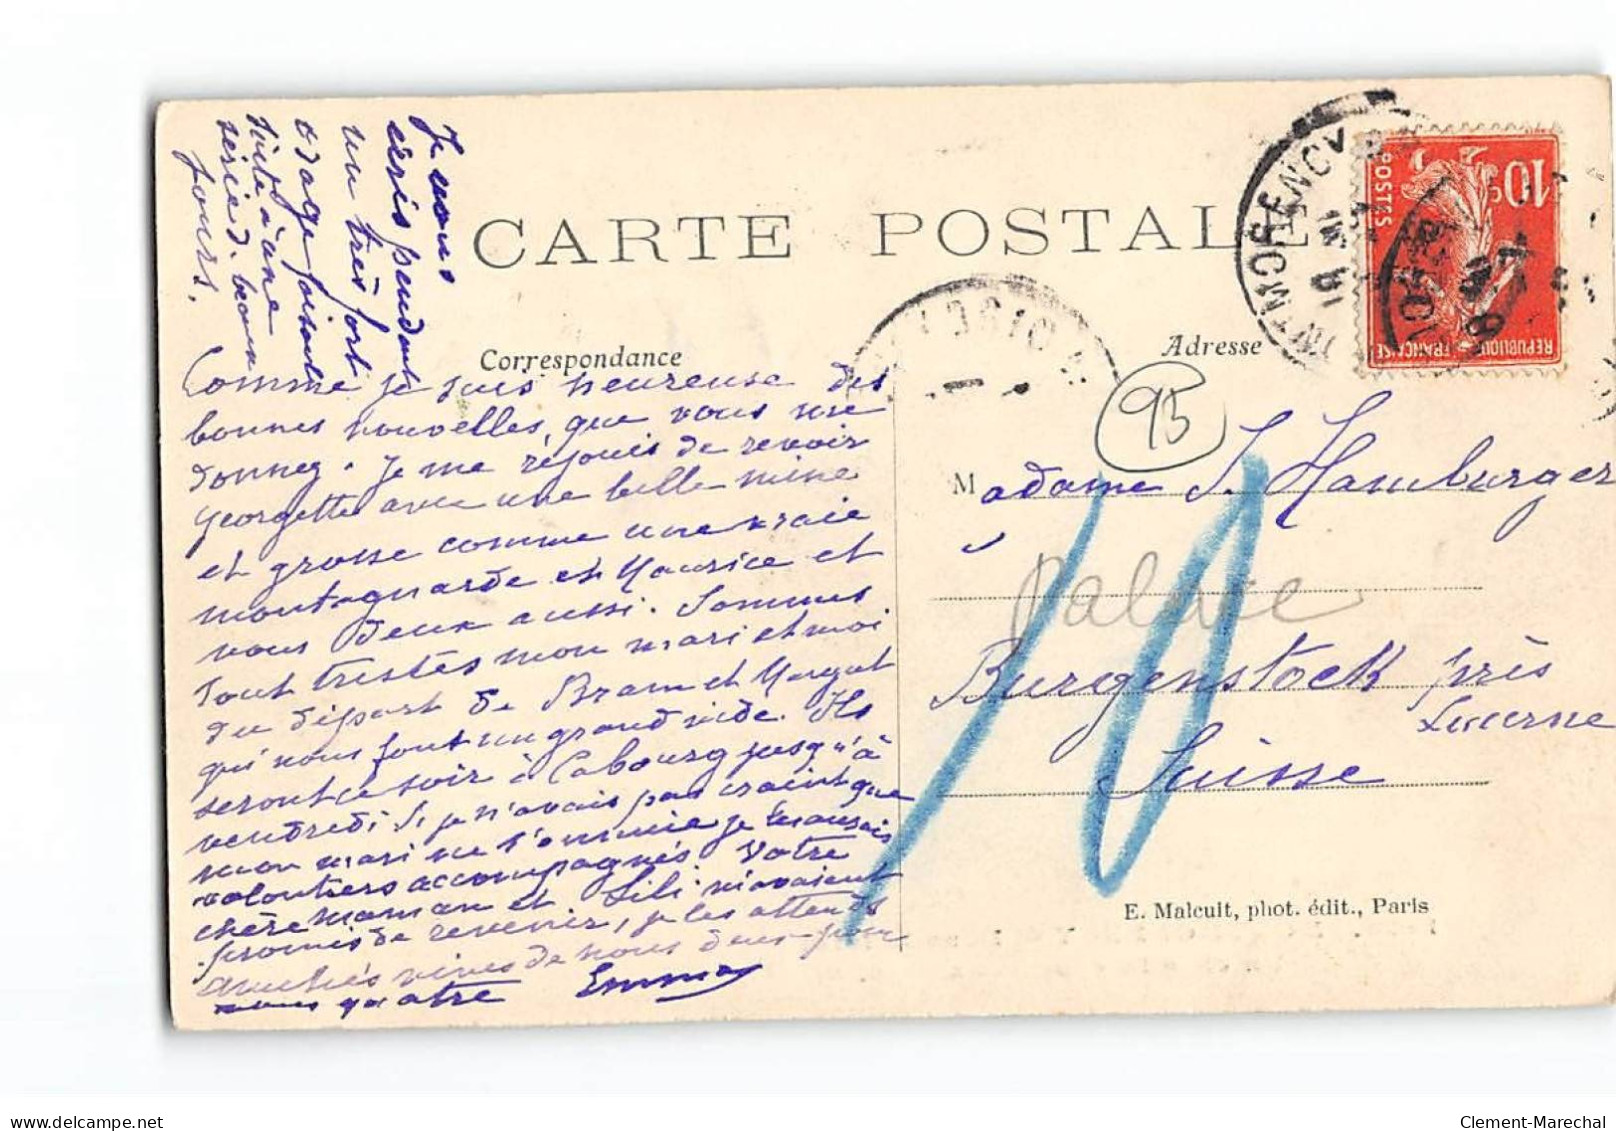 Je vous
écris pendant
un très fort
orage faisant
suite à une
série d. beaux
jours.
CARTE POSTALE
Correspondance
Adresse
MONTMORENCY
10c
POSTES
REPUBLIQUE FRANÇAISE
95
Comme je suis heureuse des
bonnes nouvelles, que vous me
donnez. Je me réjouis de revoir
Georgette avec une belle mine
et grosse comme une vraie
montagnarde et Maurice et
vous deux aussi. Sommes
tout tristes mon mari et moi
du départ de Bram et Margot
qui nous font un grand vide. Ils
seront ce soir à Cabourg jusqu'à
vendredi. Si je n'avais pas craint que
mon mari ne s'ennuie je les aurais
volontiers accompagnés. Votre
chère Maman et Lili m'avaient
promis de revenir, je les attends
amitiés vives de nous deux pour
vous quatre Emma
Madame S. Hamburger
Palace
Burgenstock près
Lucerne
Suisse
10
E. Malcuit, phot. édit., Paris
delcampe.net
Clement-Marechal